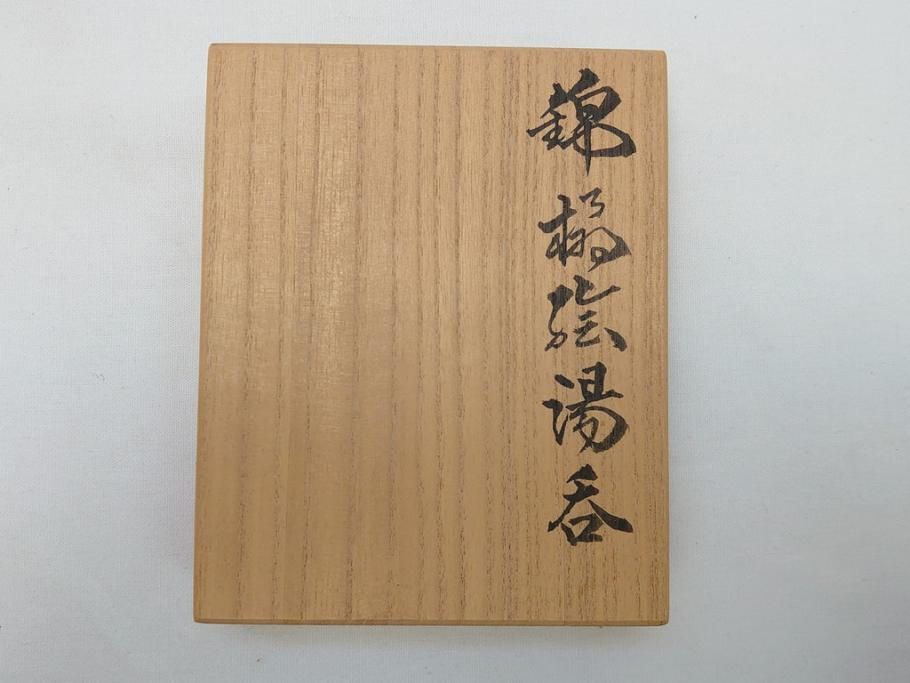 錦橘絵湯呑